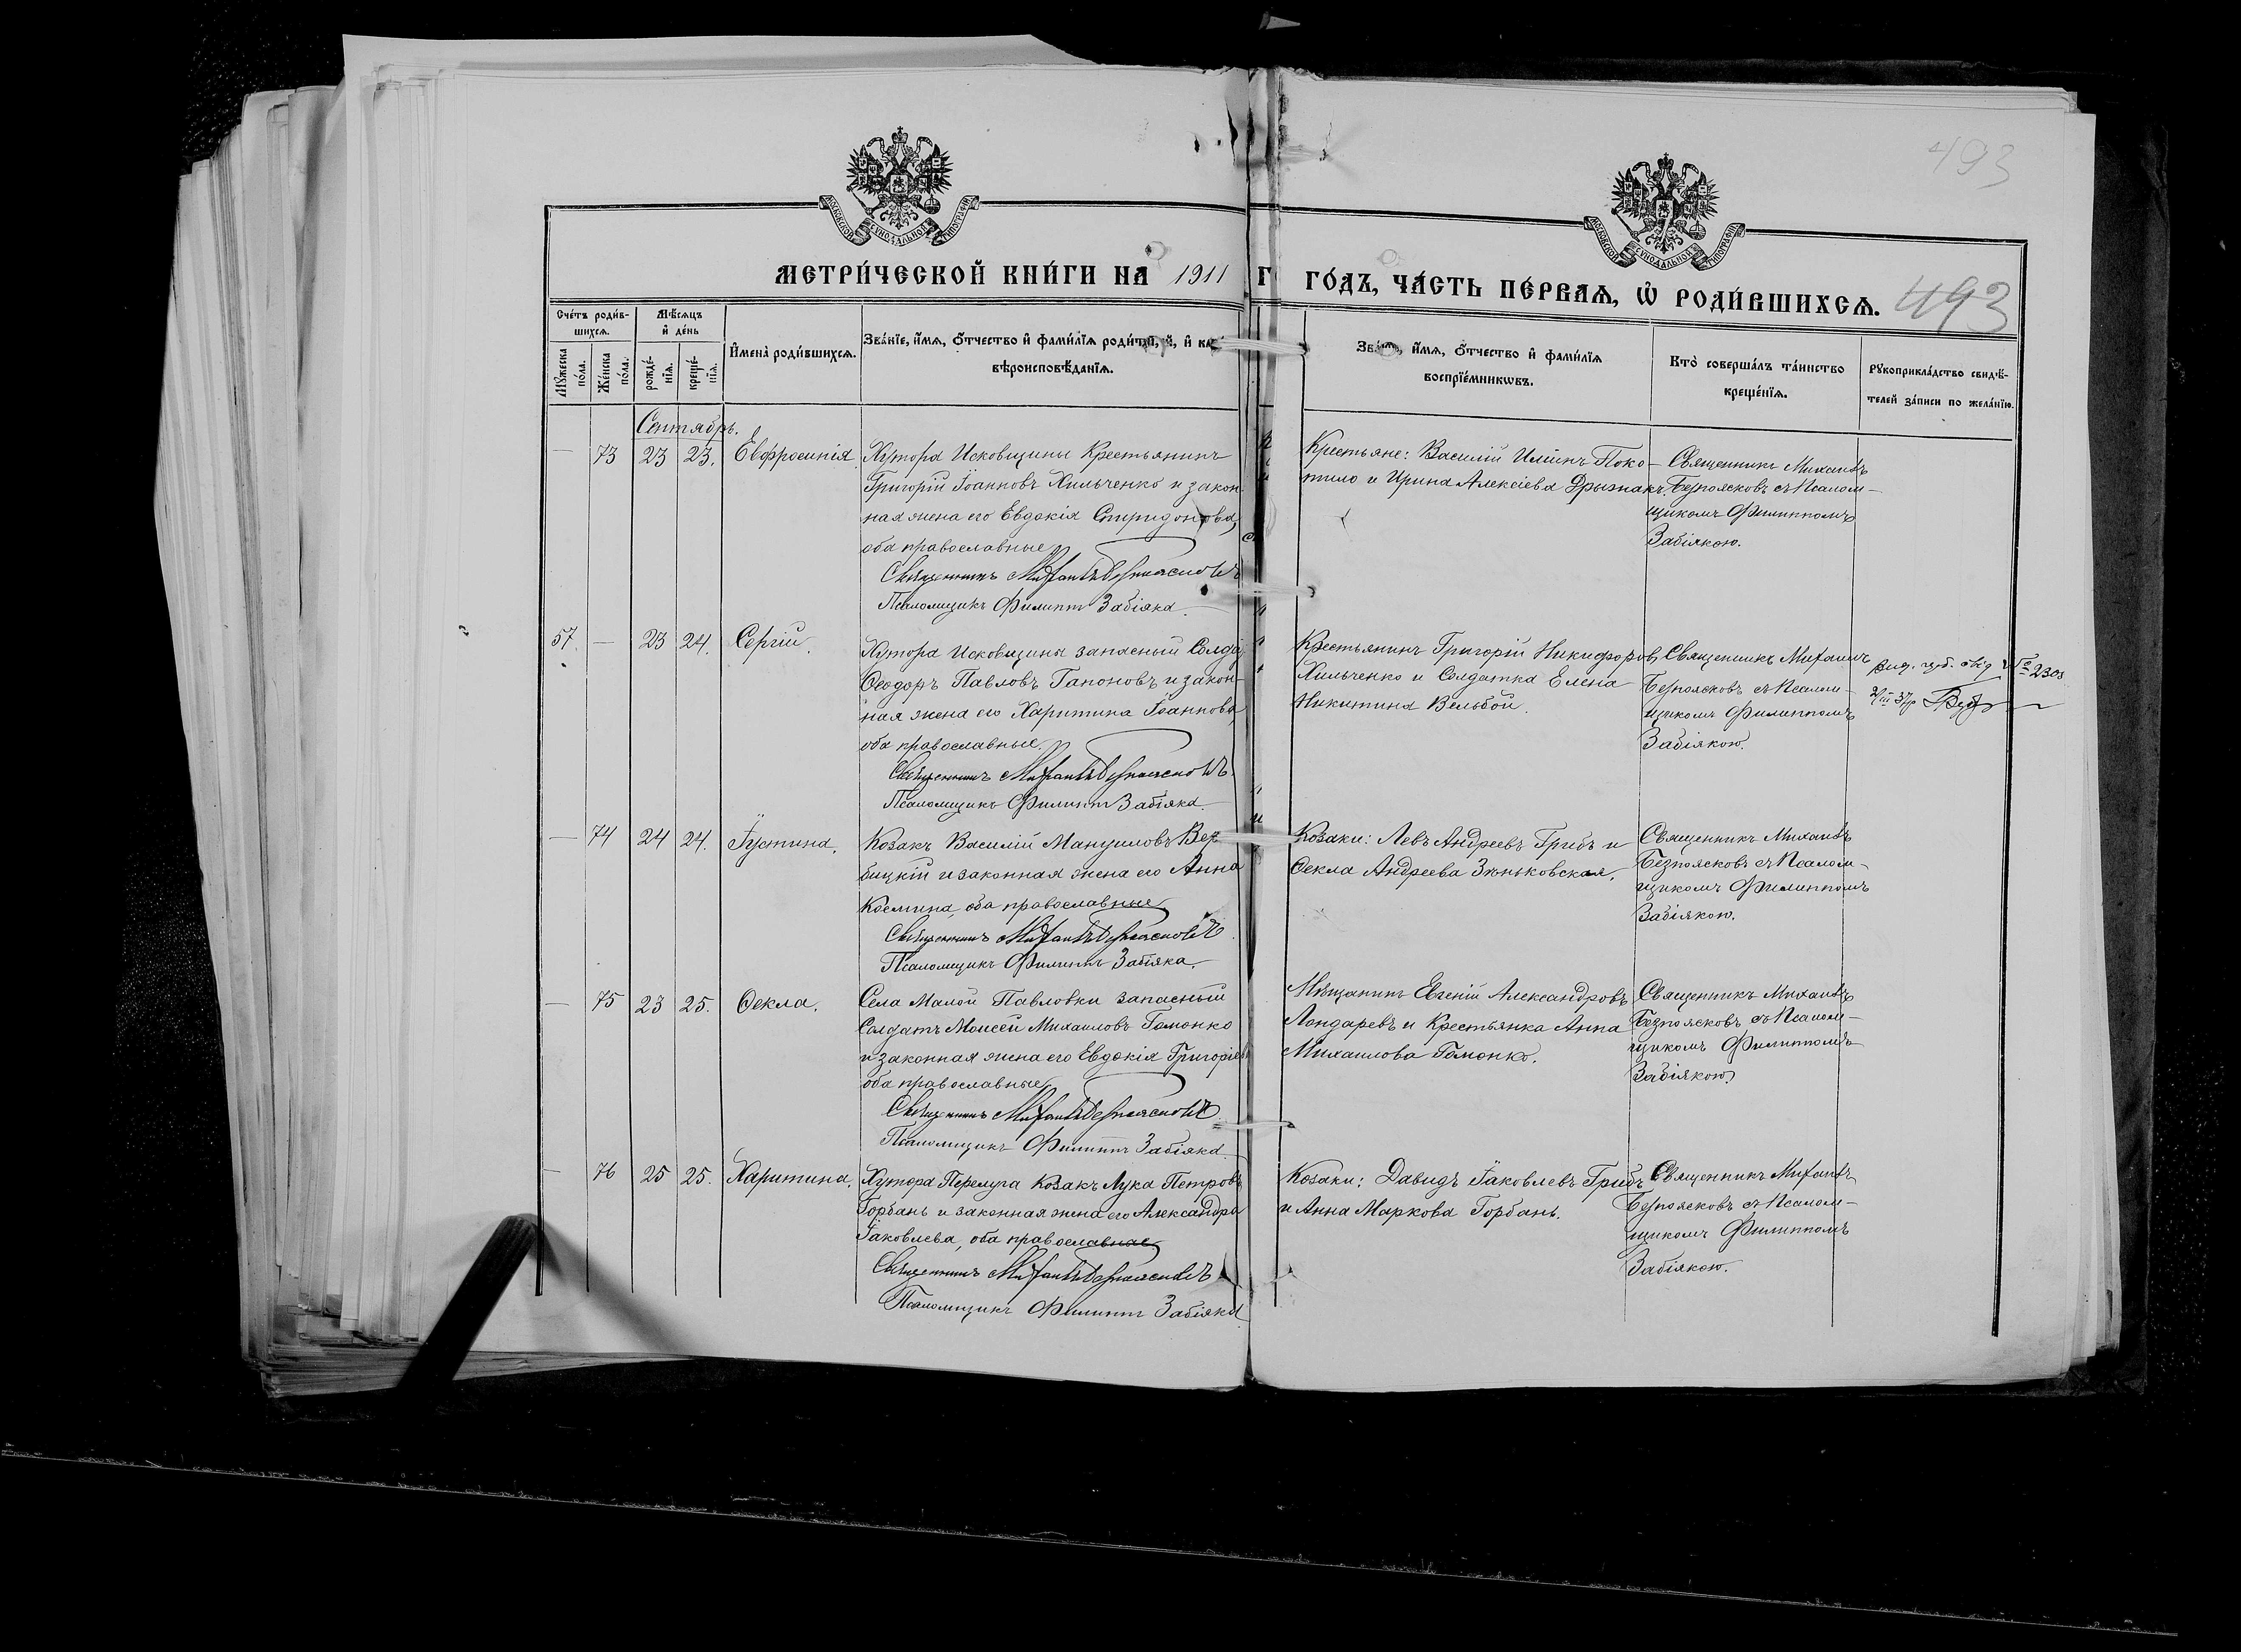 493
МОСКОВСКОЙ СѴНОДАЛЬНОЙ ТИПОГРАФІИ
МОСКОВСКОЙ СѴНОДАЛЬНОЙ ТИПОГРАФІИ
МЕТРИ́ЧЕСКОЙ КНИ́ГИ НА 1911
ГО́ДЪ, ЧА́СТЬ ПЕ́РВАѦ, Ѡ РОДИ́ВШИХСѦ. 493
Сче́тъ роди́в-
шихсѧ.
Мꙋ́жеска по́ла.
Же́нска по́ла.
Мѣ́сѧцъ
и҆ де́нь
рожде́-
нїѧ.
креще́-
нїѧ.
И҆мена̀ роди́вшихсѧ.
Зва́нїе, и҆́мѧ, ѻ҆́тчество и҆ фами́лїѧ
вѣроисповѣ́данїѧ.
и҆́мѧ, ѻ҆́тчество и҆ фами́лїѧ
воспрїе́мникѡвъ.
Кто̀ соверша́лъ та́инство
креще́нїѧ.
Рꙋкоприкла́дство свидѣ́-
телей за́писи по жела́нїю.
Сентябрь.
— 73 23 23. Евфросинія.
Хутора Исковщины Крестьянинъ
Григорій Іоанновъ Хильченко и закон-
ная жена его Евдокія Спиридонова,
оба православные
Священникъ Михаилъ Безпоясковъ
Псаломщикъ Филиппъ Забіяка.
Крестьяне: Василій Иліинъ Поко-
тило и Ирина Алексіева Дрызнакъ.
Священникъ Михаилъ
Безпоясковъ съ Псалом-
щикомъ Филиппомъ
Забіякою.
57. — 23 24. Сергій.
Хутора Исковщины запасный Солда
Ѳеодоръ Павловъ Гапоновъ и закон-
ная жена его Харитина Іоаннова
оба православные.
Священникъ Михаилъ Безпоясковъ
Псаломщикъ Филиппъ Забіяка.
Крестьянинъ Григорій Никифоровъ
Хильченко и Солдатка Елена
Никитина Вельбой.
Священникъ Михаилъ
Безпоясковъ съ Псалом-
щикомъ Филиппомъ
Забіякою.
— 74 24 24. Іустина.
Козакъ Василій Мануиловъ Вер
бицкій и законная жена его Анна
Космина, оба православные
Священникъ Михаилъ Безпоясковъ
Псаломщикъ Филиппъ Забіяка.
Козаки: Левъ Андреевъ Грибъ и
Ѳекла Андреева Зеньковская.
Священникъ Михаилъ
Безпоясковъ съ Псалом-
щикомъ Филиппомъ
Забіякою.
— 75 23 25. Ѳекла.
Села Малой Павловки запасный
Солдатъ Моисей Михаиловъ Гамонко
и законная жена его Евдокія Григоріе
оба православные
Священникъ Михаилъ Безпоясковъ
Псаломщикъ Филиппъ Забіяка.
Мѣщанинъ Евгеній Александровъ
Лондаревъ и Крестьянка Анна
Михаилова Гамонко.
Священникъ Михаилъ
Безпоясковъ съ Псалом-
щикомъ Филиппомъ
Забіякою.
— 76 25 25. Харитина.
Хутора Перелуга Козакъ Лука Петровъ
Горбань и законная жена его Александра
Іаковлева, оба православные
Священникъ Михаилъ Безпоясковъ
Псаломщикъ Филиппъ Забіяка
Козаки: Давидъ Іаковлевъ Грибъ
и Анна Маркова Горбань.
Священникъ Михаилъ
Безпоясковъ съ Псалом-
щикомъ Филиппомъ
Забіякою.